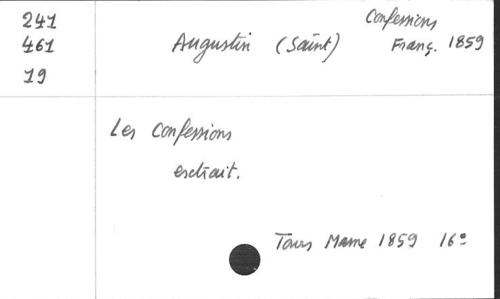 241
461
19
Augustin (Saint)
Confessions
Franç. 1859
Les Confessions
extrait.
Tours Mame 1859 16°